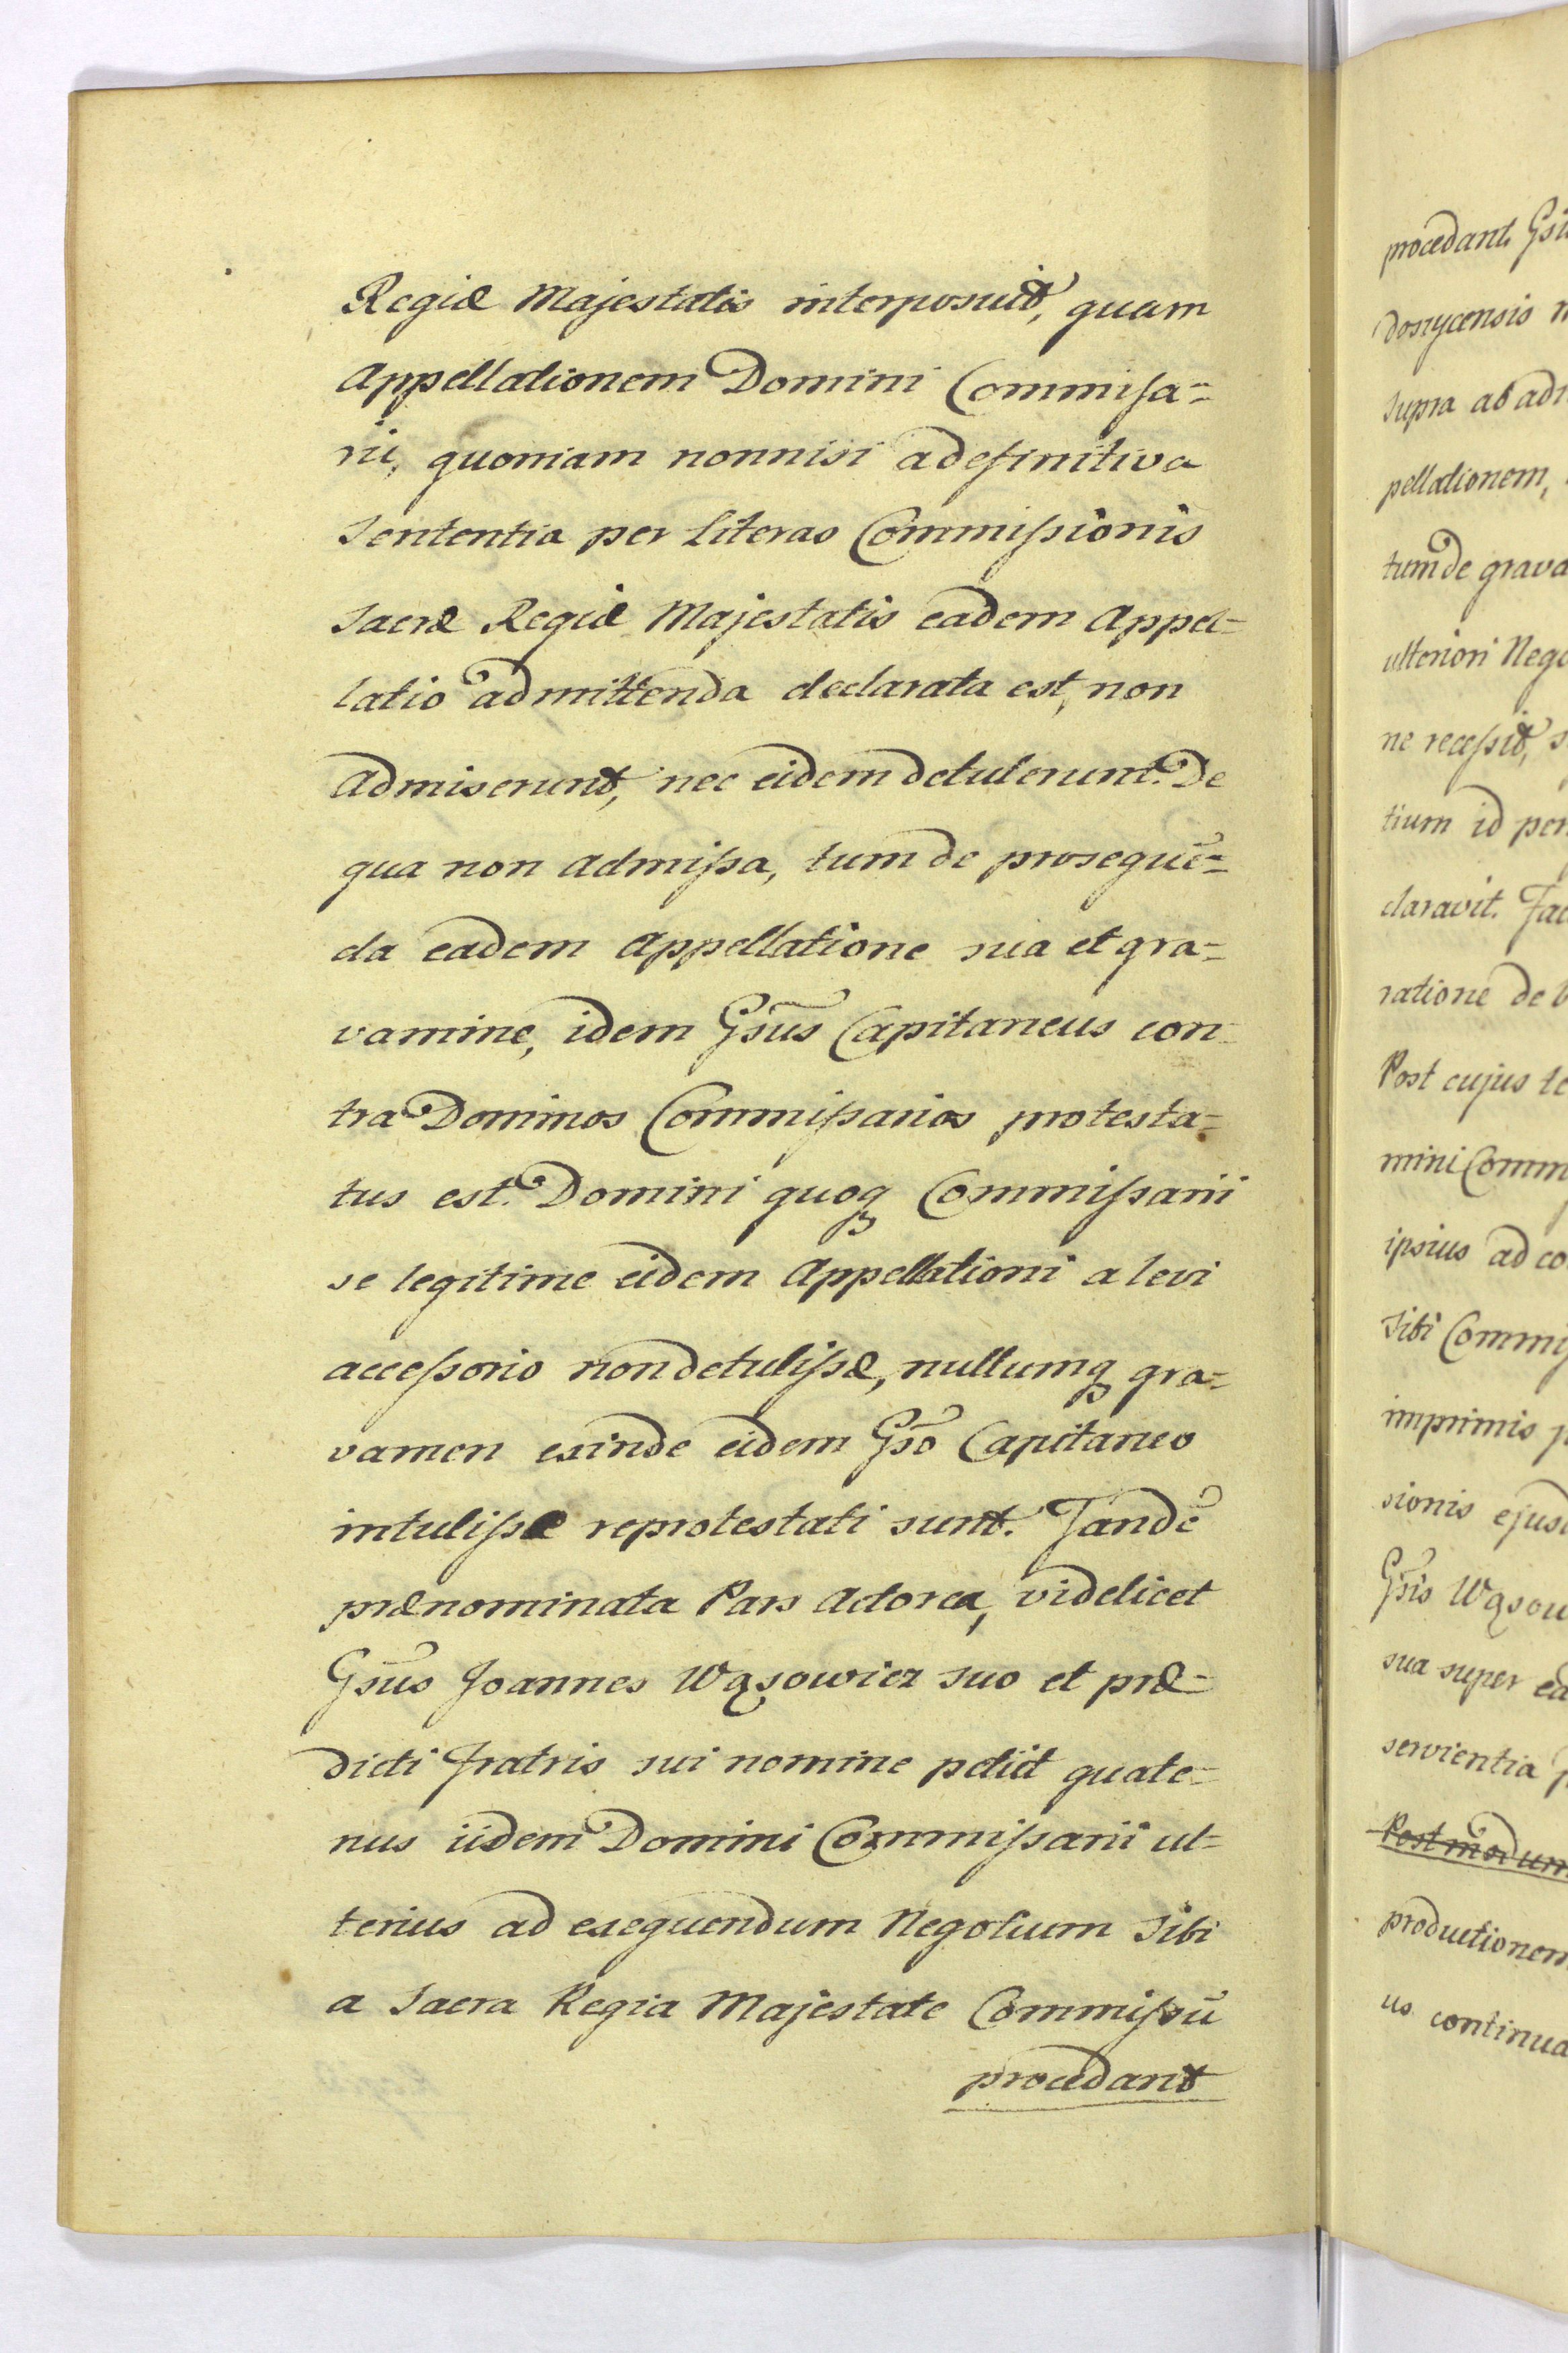 Regiæ Majestatis interposuit, quam
Appellationem Domini Commißa=
rii, quoniam nonnisi a definitiva
Sententia per Literas Commißionis
Sacræ Regiæ Majestatis eadem Appel=
latio admittenda declarata est, non
admiserunt, nec eidem detulerunt. De
qua non admißa, tum de prosequē=
da eadem Appellatione sua et gra=
vamine, idem Gsūs Capitaneus con=
tra Dominos Commißarios protesta=
tus est. Domini quoqꝫ Commißarii
se legitime eidem Appellationi a levi
acceßorio non detulißæ, nullumqꝫ gra=
vamen exinde eidem Gsō Capitaneo
intulißæ reprotestati sunt. Tandē
prænominata Pars Actorea, videlicet
Gsūs Joannes Wąsowicz suo et præ=
dicti fratris sui nomine petiit quate=
nus iidem Domini Commißarii ul=
terius ad exequendum Negotium Sibi
a Sacra Regia Majestate Commißū
procedant
procedant. Gsū
dosrycensis
Supra ab ad
pellationem,
tum de grava
ulteriori Nego
ne receßit,
tium id per
claravit. Fac
ratione de
Post cujus
mini Comm
ipsius ad co
Sibi Commiß
imprimis
sionis ejusd
Gsīs Wąsow
sua super ea
servientia
Post modum
productionem
us continua